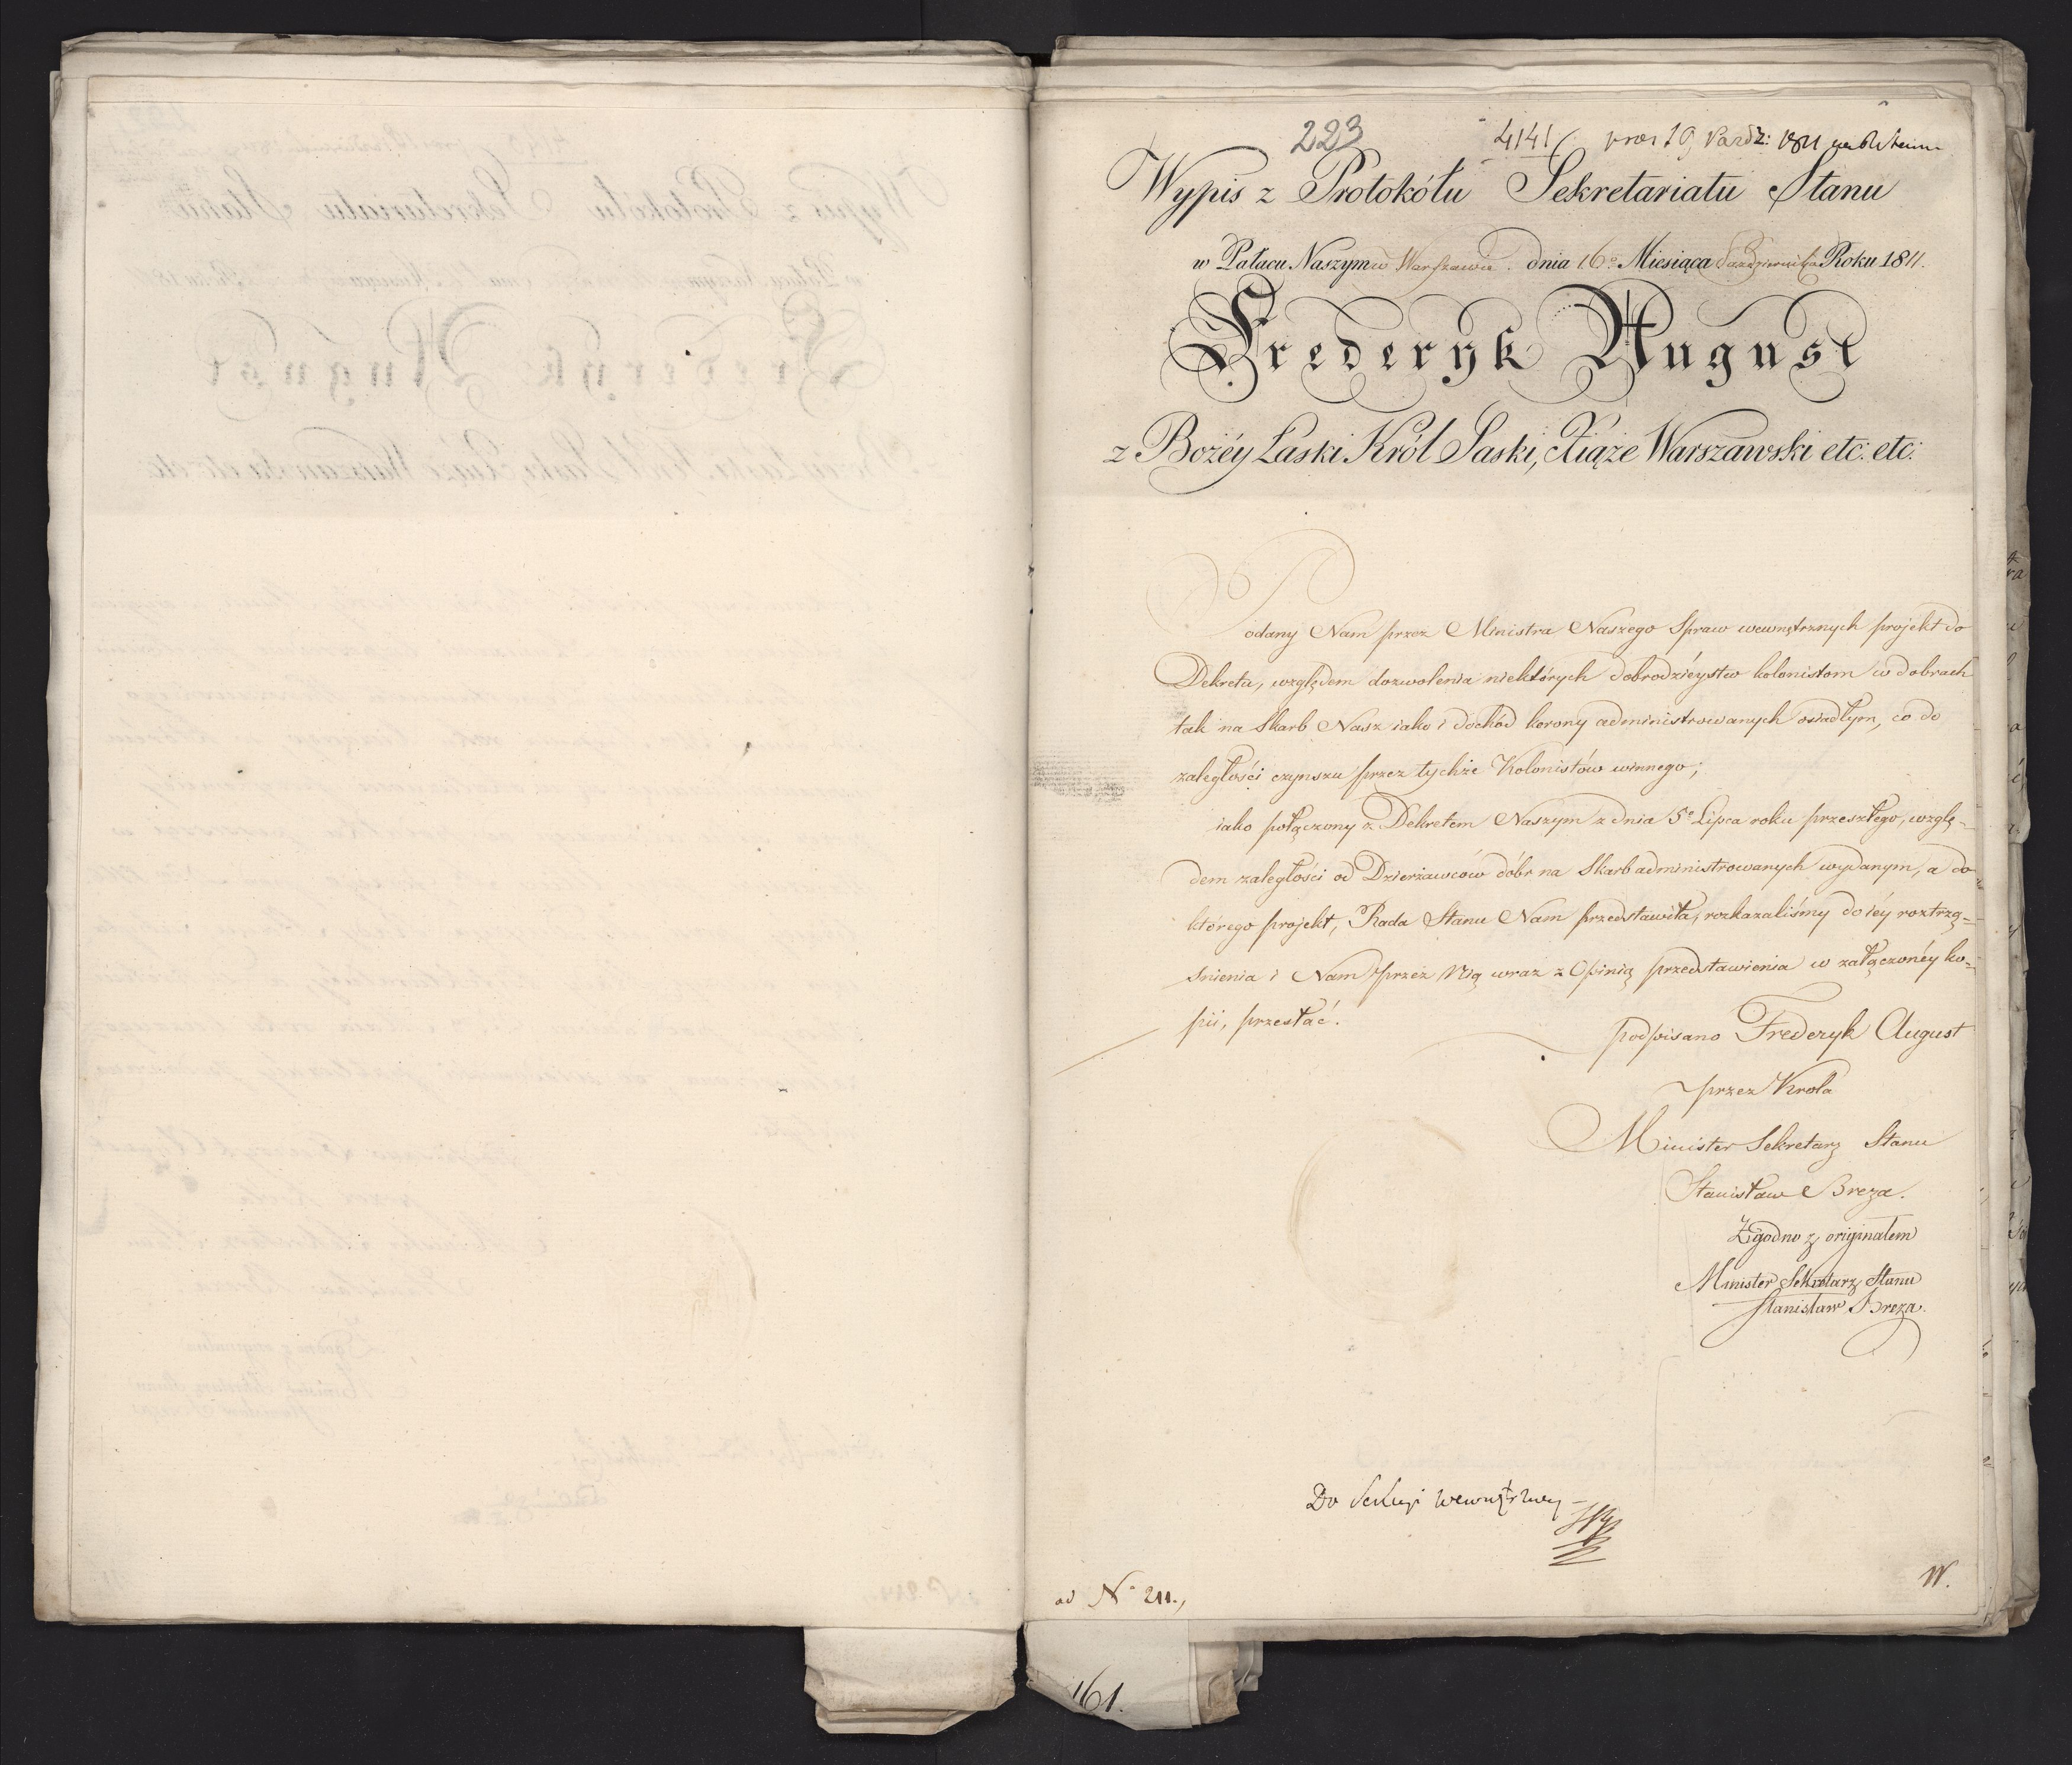 223
4141 praes 19 Paźdz: 1811
Wypis z Protokółu Sekretariatu Stanu
w Pałacu Naszym w Warszawie. dnia 16º Miesiąca Października Roku 1811.
Frederyk August
z Bożéy Łaski Król Saski, Xiąże Warszawski etc: etc:
Podany Nam przez Ministra Naszego Spraw wewnętrznych projekt do
Dekretu, względem dozwolenia niektórych dobrodzieystw kolonistom w dobrach
tak na Skarb Nasz iako i dochód korony administrowanych osiadłym, co do
zaległości czynszu przez tychże Kolonistów winnego;
iako połączony z Dekretem Naszym z dnia 5º Lipca roku przeszłego, wzglę-
dem zaległości od Dzierżawców dóbr na Skarb administrowanych wydanym, a do
którego projekt, Rada Stanu Nam przedstawiła, rozkazaliśmy do iéy roztrzą-
śnienia i Nam przez Nią wraz z Opinią przedstawienia w załączonéy ko-
pii, przesłać.
podpisano Frederyk August
przez Króla
Minister Sekretarz Stanu
Stanisław Breza.
Zgodno z originałem
Minister Sekretarz Stanu
Stanisław Breza.
Do Sekcyi Wewnętrzney
ad Nº 211.,
W.
161.